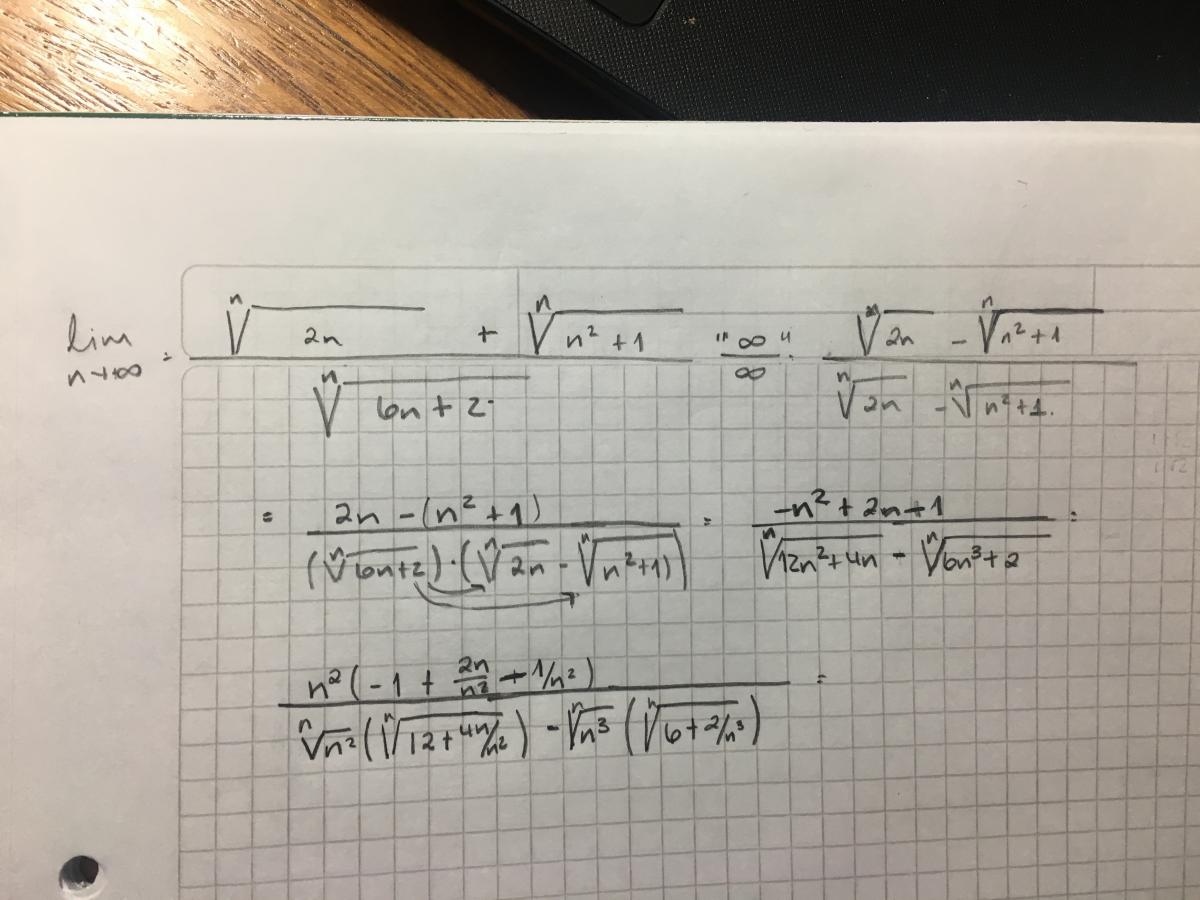 lim n→∞ = (ⁿ√(2n) + ⁿ√(n² + 1)) / ⁿ√(6n + 2) "∞/∞" = (ⁿ√(2n) - ⁿ√(n² + 1)) / (ⁿ√(2n) - ⁿ√(n² + 1))
= (2n - (n² + 1)) / ((ⁿ√(6n+2)) · (ⁿ√(2n) - ⁿ√(n² + 1))) = (-n² + 2n + 1) / (ⁿ√(12n² + 4n) - ⁿ√(6n³ + 2)) =
n²(-1 + 2n/n² + 1/n²) / (ⁿ√(n²) (ⁿ√(12 + 4n/n²)) - ⁿ√(n³) (ⁿ√(6 + 2/n³))) =